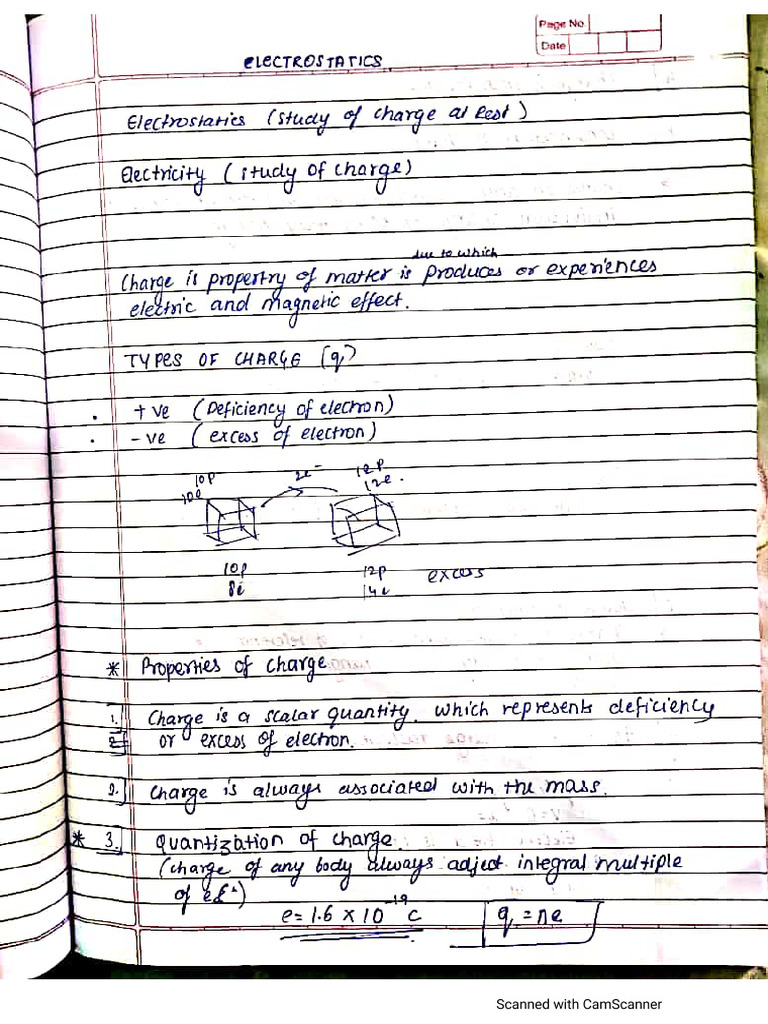 Page No.
Date
ELECTROSTATICS
Electrostatics (study of charge at Rest)
Electricity (study of charge)
due to which
Charge is propertry of matter is produces or experiences
electric and magnetic effect.
TYPES OF CHARGE (q)
. +ve (Deficiency of electron)
. -ve (excess of electron)
10p 2e⁻ 12p
10e 12e.
10p 12p excess
8e 14e
* Properties of charge
1. Charge is a scalar quantity. which represents deficiency
or excess of electron.
2. Charge is always associated with the mass.
* 3. Quantization of charge.
(charge of any body always adject integral multiple
of
e = 1.6 × 10⁻¹⁹ c q = ne
Scanned with CamScanner